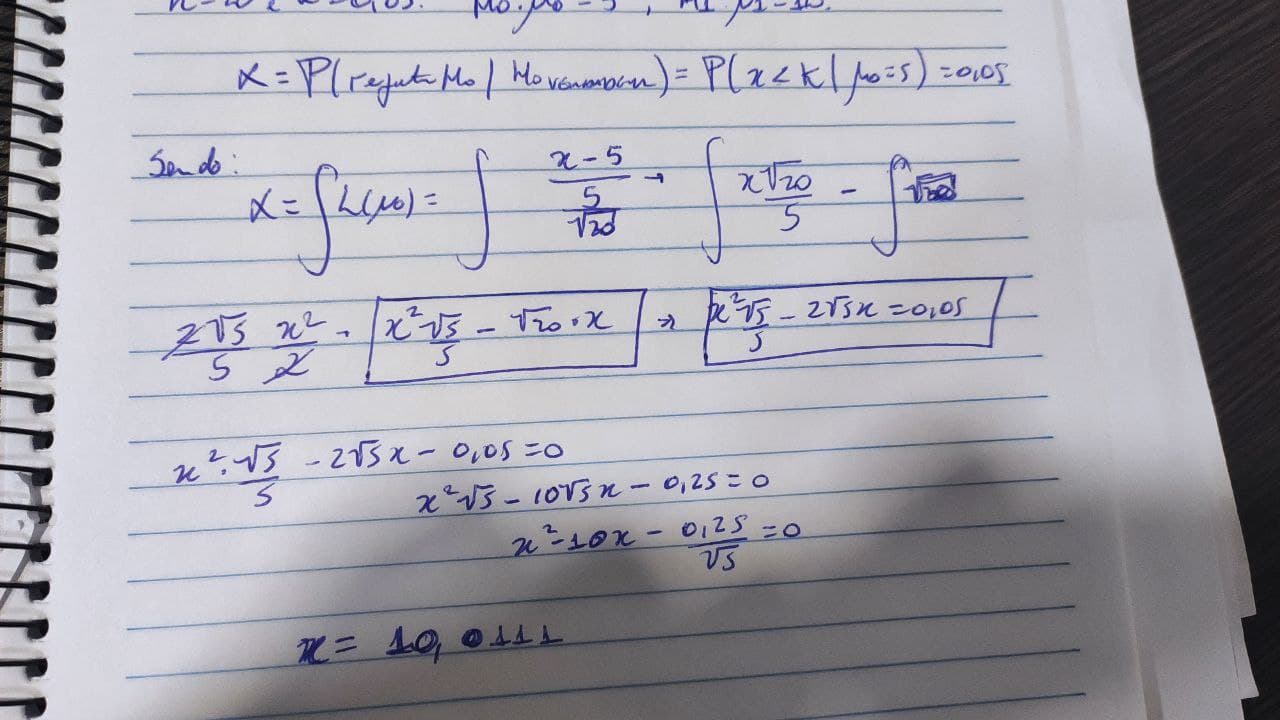 n=20 e α=0,05. H0: μ0=5, H1: μ1=10.
α = P(rejeita H0 | H0 verdadeira) = P(x < K | μ0=5) = 0,05
Sendo:
α = ∫ L(μ0) = ∫ (x-5)/(5/√20) → ∫ x√20/5 - ∫ √20
2√5/5 x²/2 · x²√5/5 - √20·x ⇒ x²√5/5 - 2√5x = 0,05
x²·√5/5 - 2√5x - 0,05 = 0
x²√5 - 10√5x - 0,25 = 0
x² - 10x - 0,25/√5 = 0
x = 10,0111